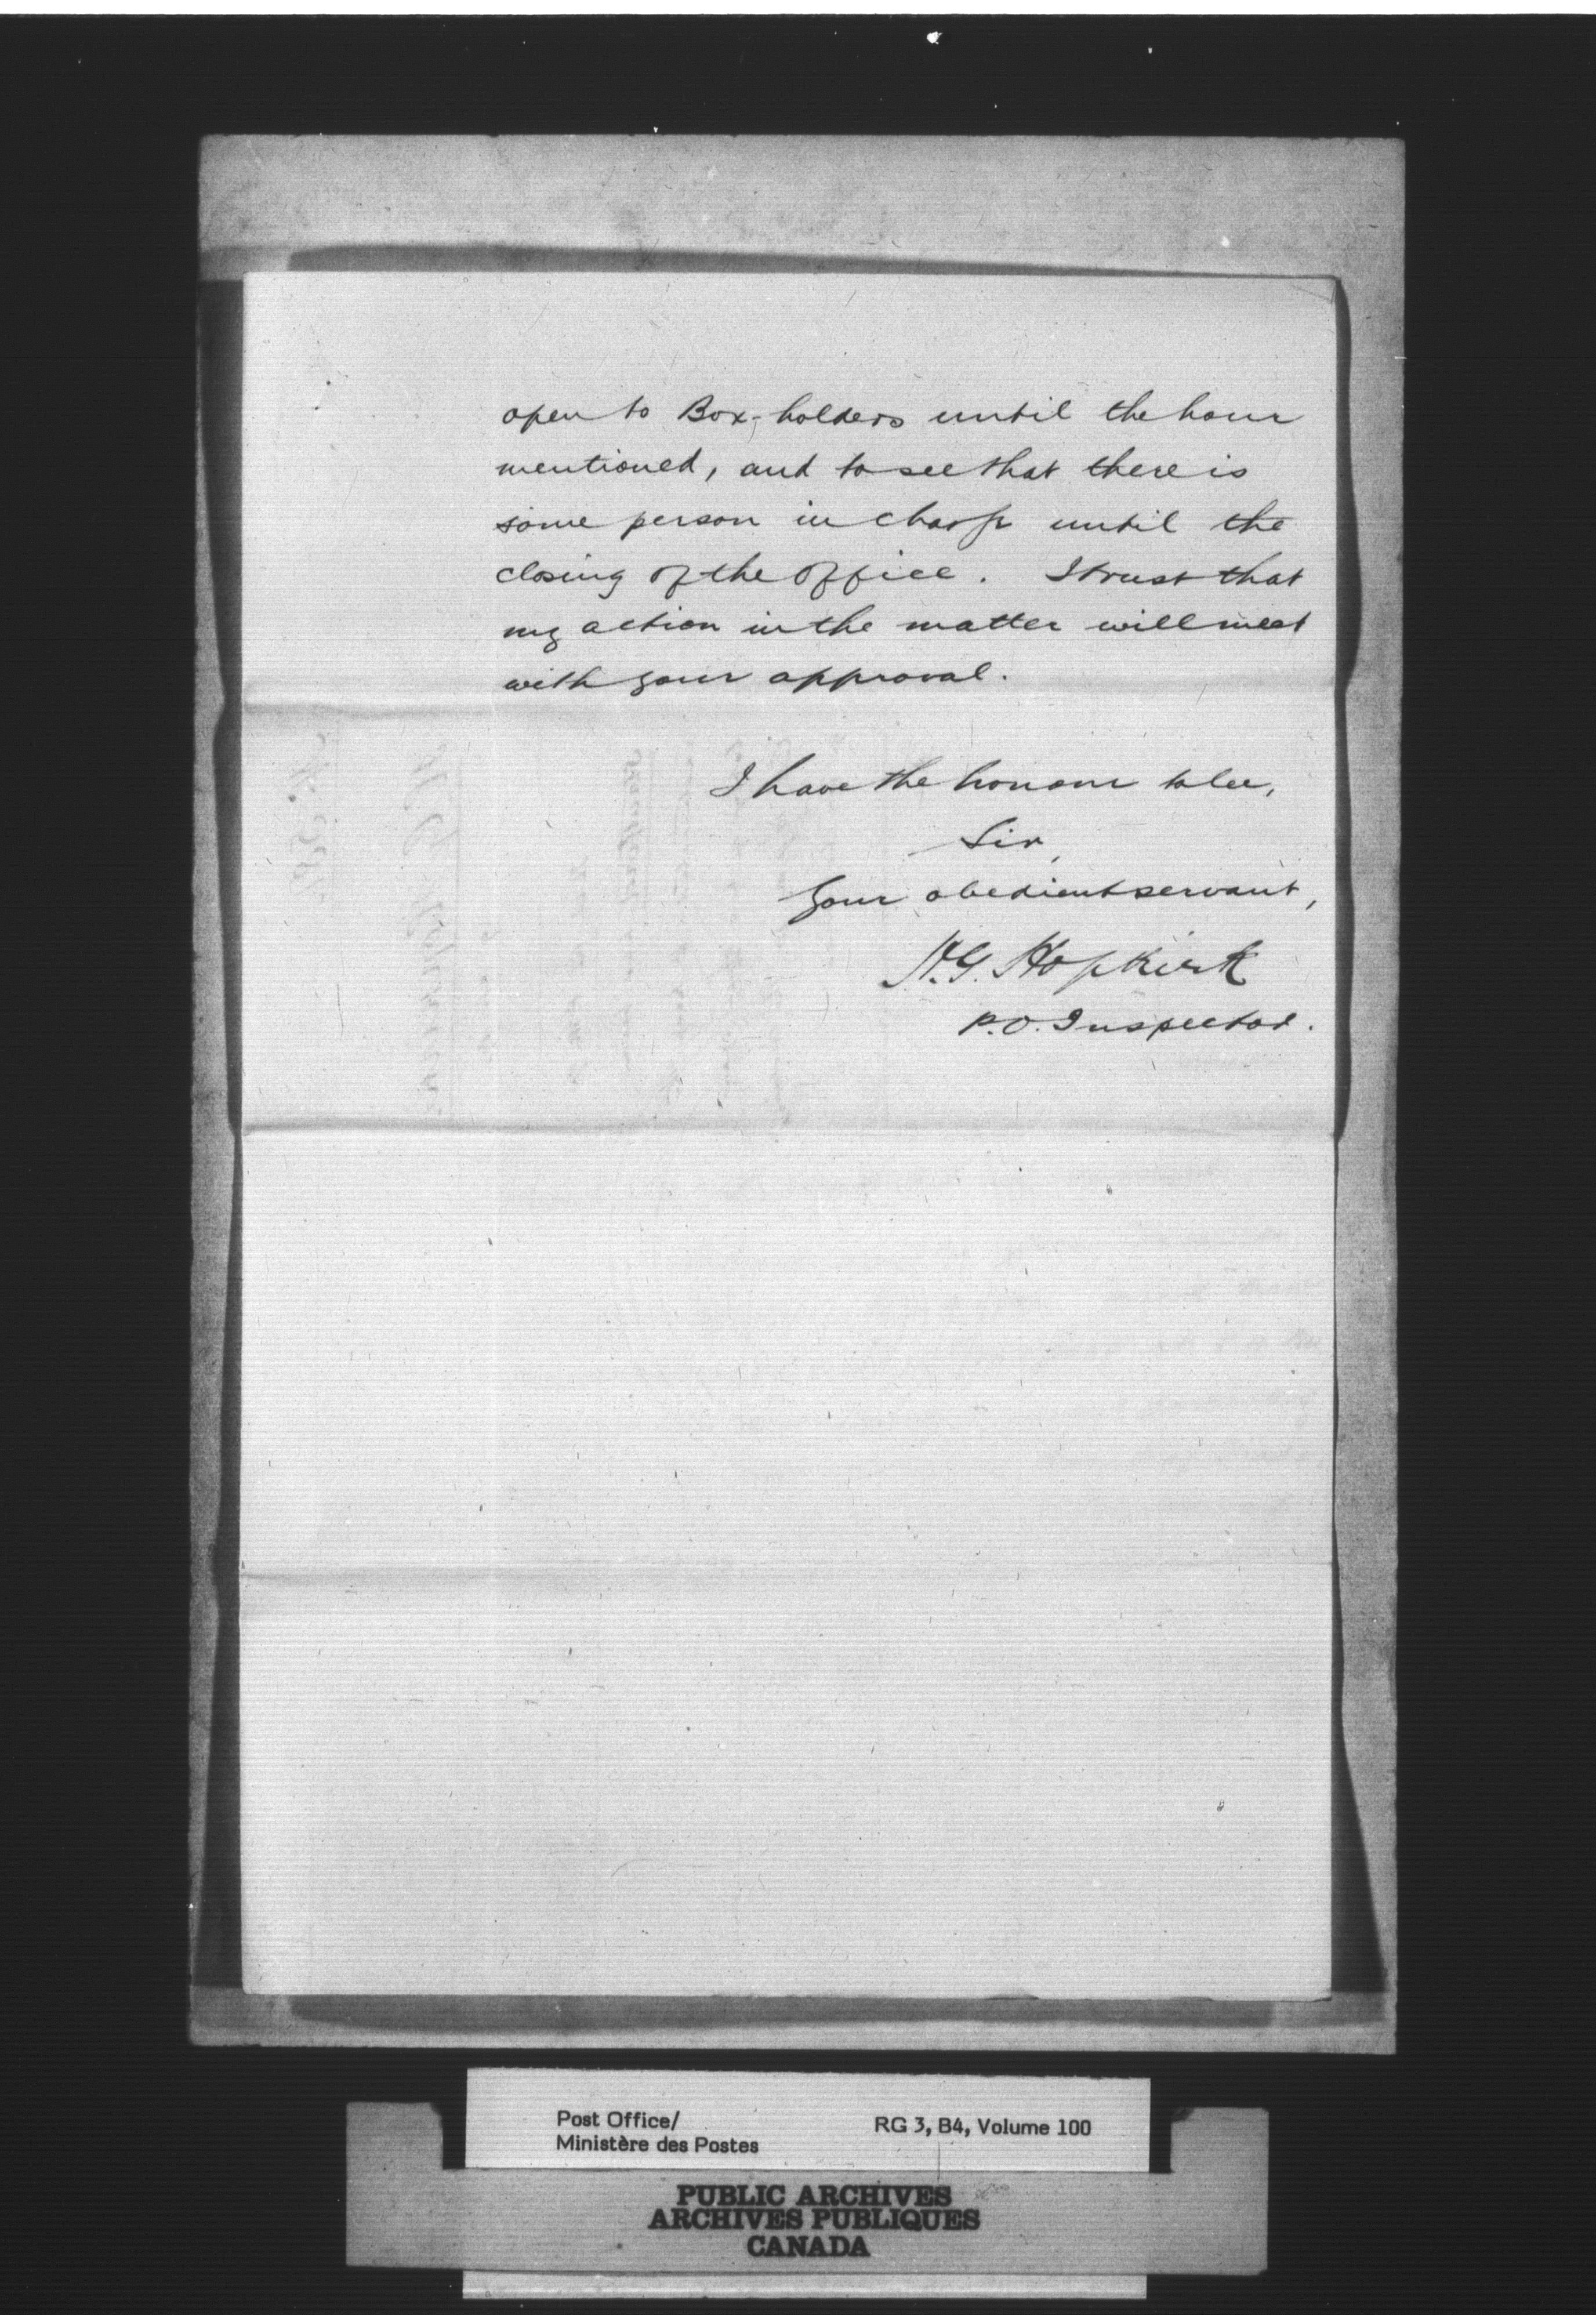 open to Box-holders until the hour
mentioned, and to see that there is
some person in charge until the
closing of the Office. I trust that
my action in the matter will meet
with your approval.
I have the honour to be,
Sir,
Your obedient servant,
H.G. Hopkirk
P.O. Inspector.
Post Office/
Ministère des Postes
RG 3, B4, Volume 100
PUBLIC ARCHIVES
ARCHIVES PUBLIQUES
CANADA